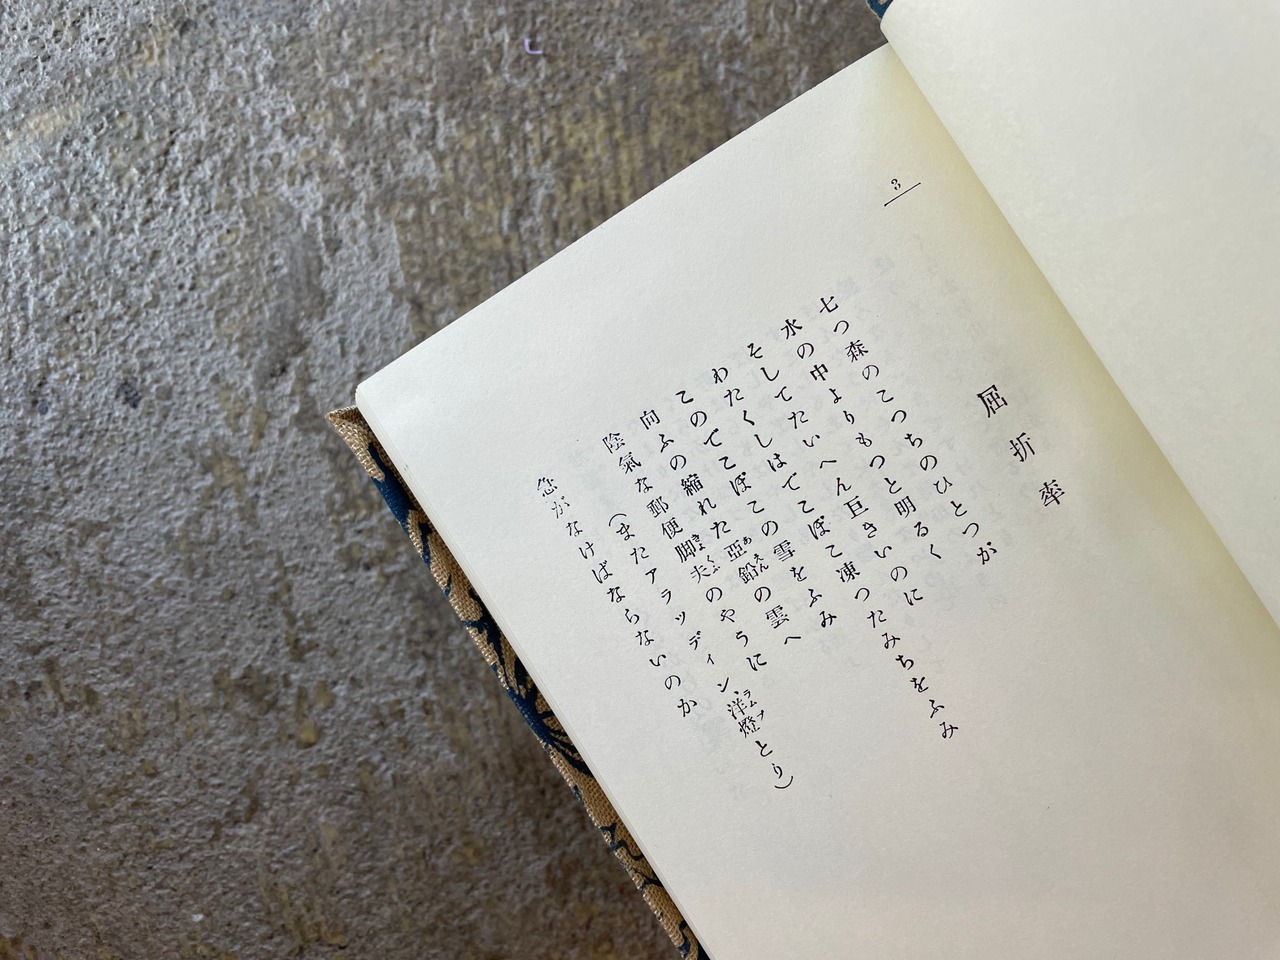 3
屈折率
七つ森のこつちのひとつが
水の中よりもつと明るく
そしてたいへん巨きいのに
わたくしはでこぼこ凍つたみちをふみ
このでこぼこの雪をふみ
向ふの縮れた亞鉛の雲へ
陰氣な郵便脚夫のやうに
(またアラツデイン、洋燈とり)
急がなければならないのか